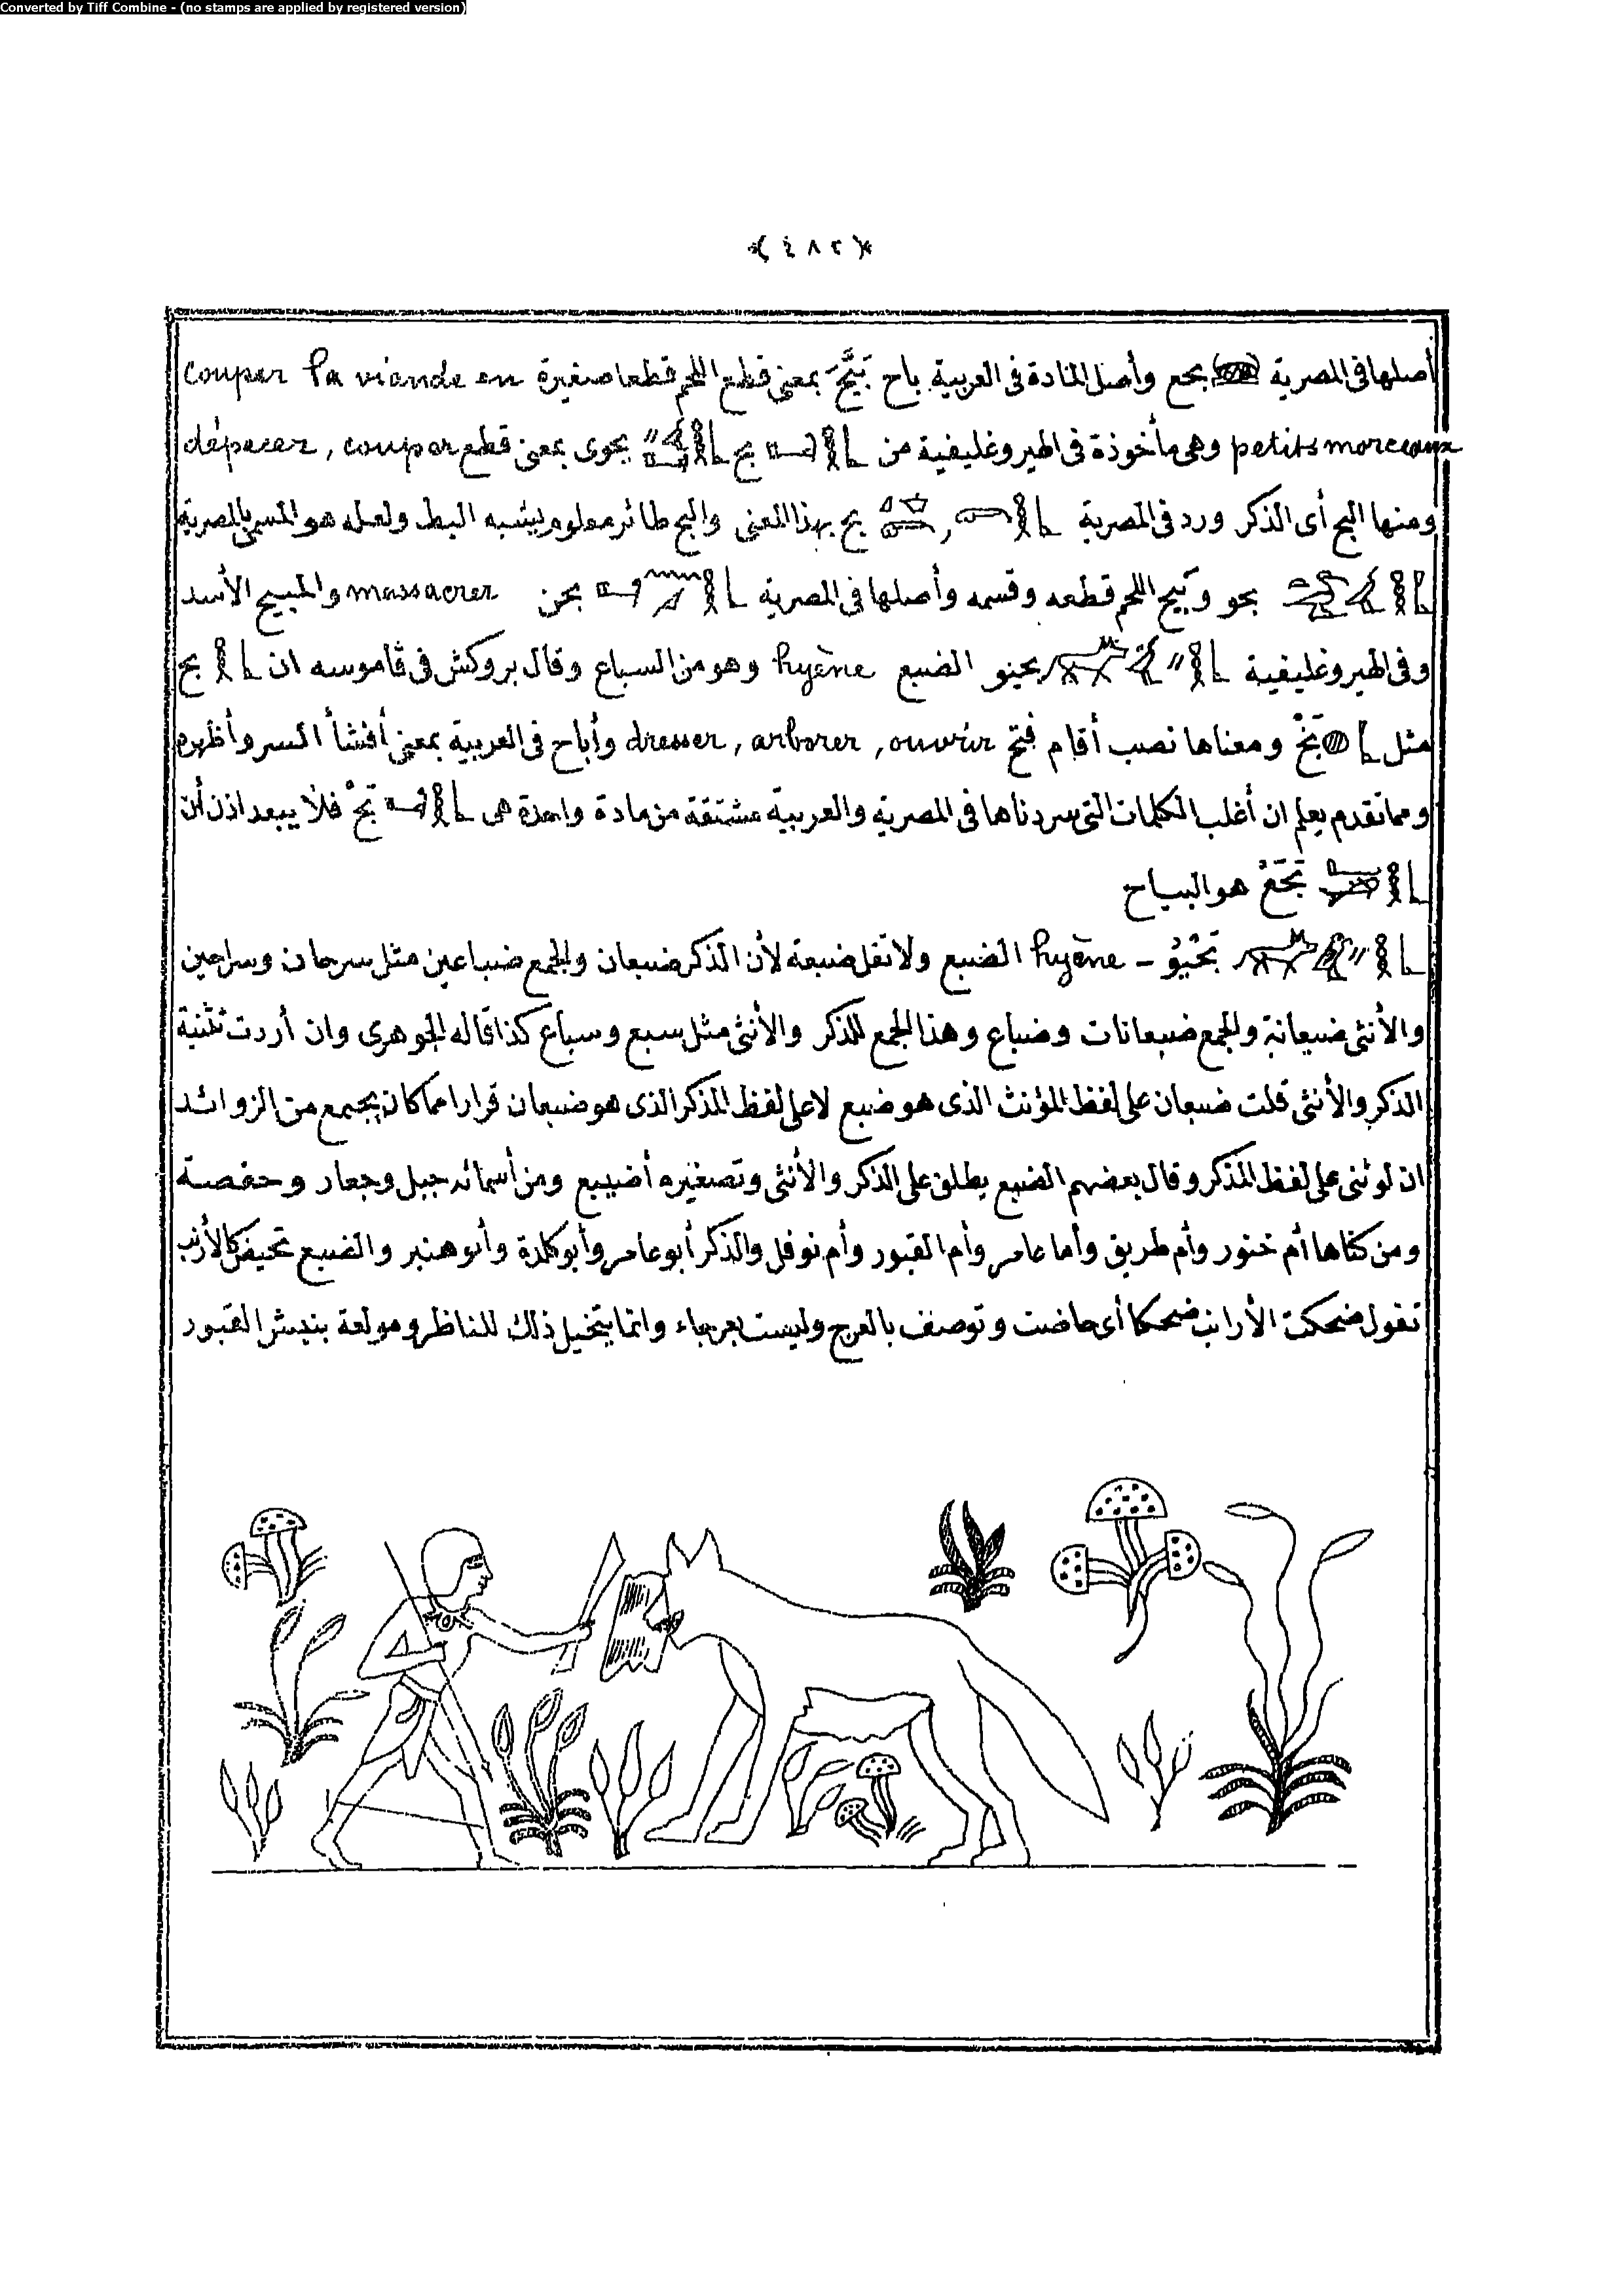 Converted by Tiff Combine - (no stamps are applied by registered version)
﴿٤٨٢﴾
أصلها فى المصرية بحع وأصل المادة فى العربية باح بَيَّحَ بمعنى قطع اللحم قطعا صغيرة couper la viande en
petits morceaux وهى مأخوذة فى الهيروغليفية من بح بحوى بمعنى قطع dépecer, couper
ومنها البح أى الذكر ورد فى المصرية , بح بهذا المعنى والبح طائر معلوم يشبه البط ولعله هو المسمى بالمصرية
بحو وبيح اللحم قطعه وقسمه وأصلها فى المصرية بحن massacrer والمبيح الأسد
وفى الهيروغليفية بحيو الضبع hyène وهو من السباع وقال بروكش فى قاموسه ان بح
مثل بَخْ ومعناها نصب أقام فتح dresser, arborer, ouvrir وأباح فى العربية بمعنى أفشأ السر وأظهره
ومما تقدم يعلم ان أغلب الكلمات التى سردناها فى المصرية والعربية مشتقة من مادة واحدة هى بَحْ فلا يبعد اذن أن
هو البياح
بَحْيُو - hyène الضبع ولا تقل ضبعة لأن الذكر ضبعان والجمع ضباعين مثل سرحان وسراحين
والأنثى ضبعانة والجمع ضبعانات وضباع وهذا الجمع للذكر والأنثى مثل سبع وسباع كذا قاله الجوهرى وان أردت تثنية
الذكر والأنثى قلت ضبعان على لفظ المؤنث الذى هو ضبع لا على لفظ المذكر الذى هو ضبعان قرارا مما كان يجتمع من الزوائد
ان لو ثنى على لفظ المذكر وقال بعضهم الضبع يطلق على الذكر والأنثى وتصغيره أضيبع ومن أسمائه جيل وجعار وحفصة
ومن كناها أم خنور وأم طريق وأما عامر وأم القبور وأم نوفل والذكر أبو عامر وأبو كلدة وأبو هنبر والضبع تحيض كالأرنب
تقول ضحكت الأرانب ضحكا أى حاضت وتوصف بالعرج وليست بعرجاء وانما يتخيل ذلك للناظر ومولعة بنبش القبور